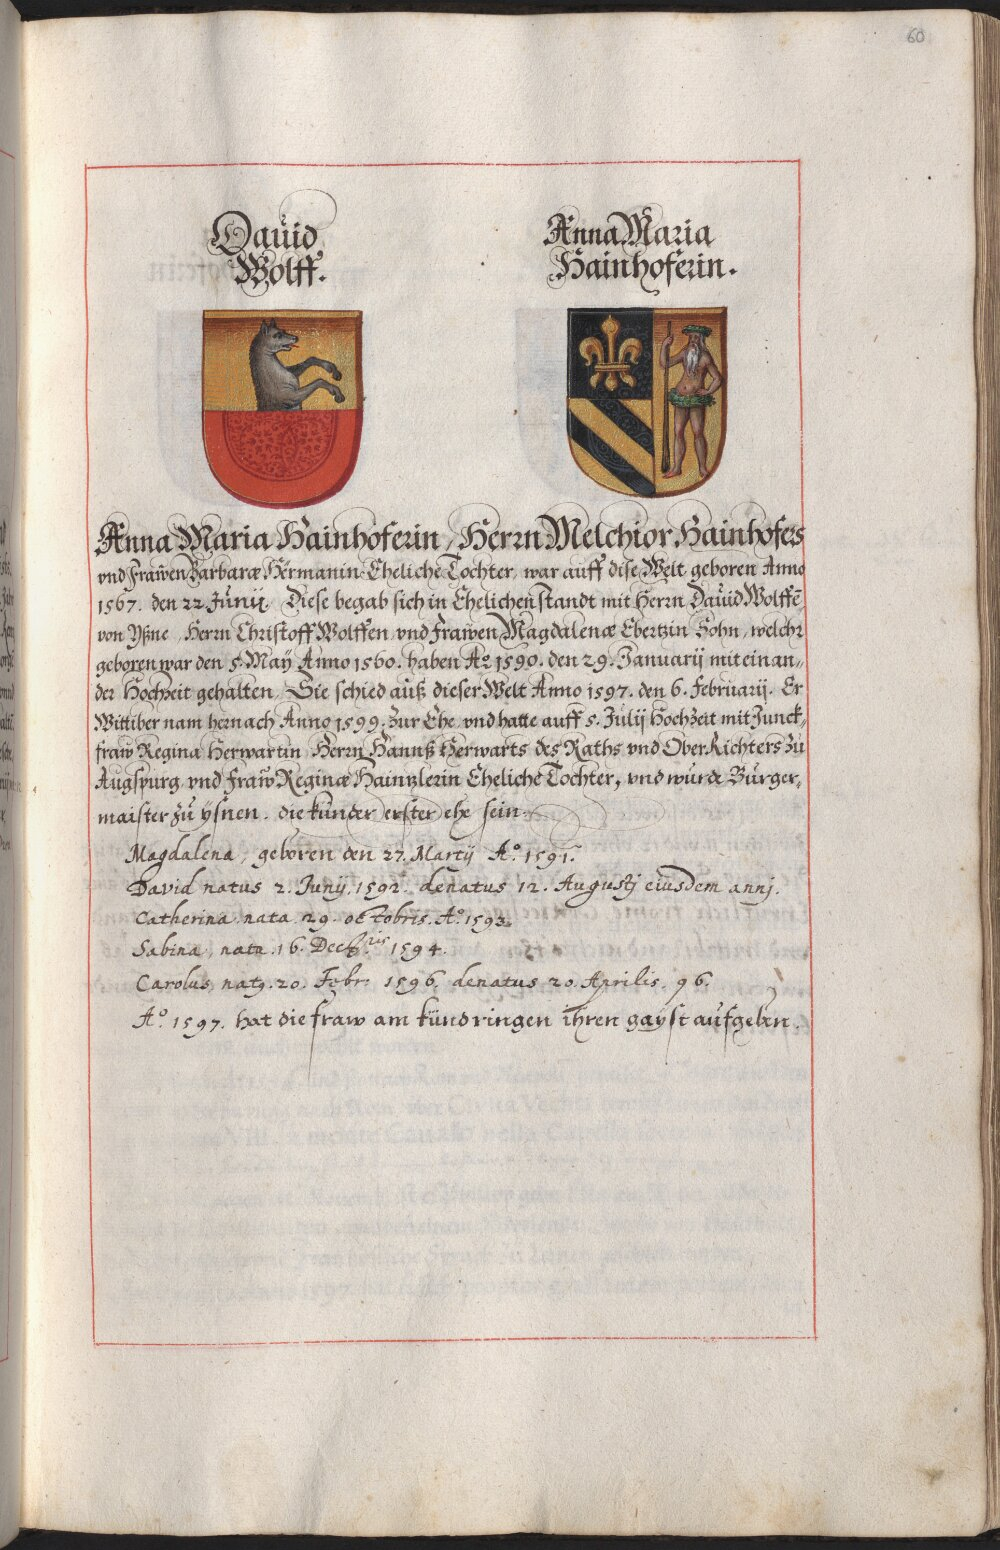 60
Dauid
Wolff.
Anna Maria
Hainhoferin.
Anna Maria Hainhoferin, Herrn Melchior Hainhofers
vnd Frawen Barbaræ Hörmanin Eheliche Tochter, war auff dise Welt geboren Anno
1567. den 22 Junij, Diese begab sich in Ehelichen standt mit Herrn Dauid Wolffē,
von Yßne, Herrn Christoff Wolffen, vnd Frawen Magdalenæ Ebertzin Sohn, welchr
geboren war den 5. May Anno 1560. haben Aᵒ 1590. den 29. Januarij mit einan-
der Hochzeit gehalten, Sie schied auß dieser Welt Anno 1597. den 6. Februarij. Er
Wittiber nam hernach Anno 1599. zur Ehe, vnd hatte auff 5. Julij Hochzeit mit Junck-
fraw Regina Herwartin, Herrn Hannß Herwarts des Raths vnd Ober Richters zu
Augspurg, vnd Fraw Reginæ Haintzlerin Eheliche Tochter, vnd wurde Burger-
maister zu ysnen. die künder erster ehe sein
Magdalena, geboren den 27. Martij Aᵒ. 1591.
David natus 2. Junij, 1592. denatus 12. Augustj eiusdem annj.
Catherina nata 29. octobris. Aᵒ. 1593.
Sabina, nata 16. Decbris 1594.
Carolus natꝯ. 20. Febr: 1596. denatus 20. Aprilis. 96.
Aᵒ. 1597. hat die fraw am kündringen ihren gayst aufgeben.